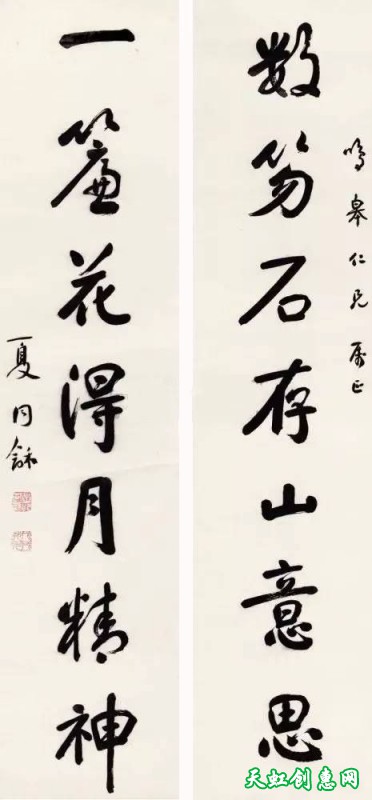 鳴皋仁兄屬正
数笏石存山意思
一簾花得月精神
夏同龢
天虹创惠网